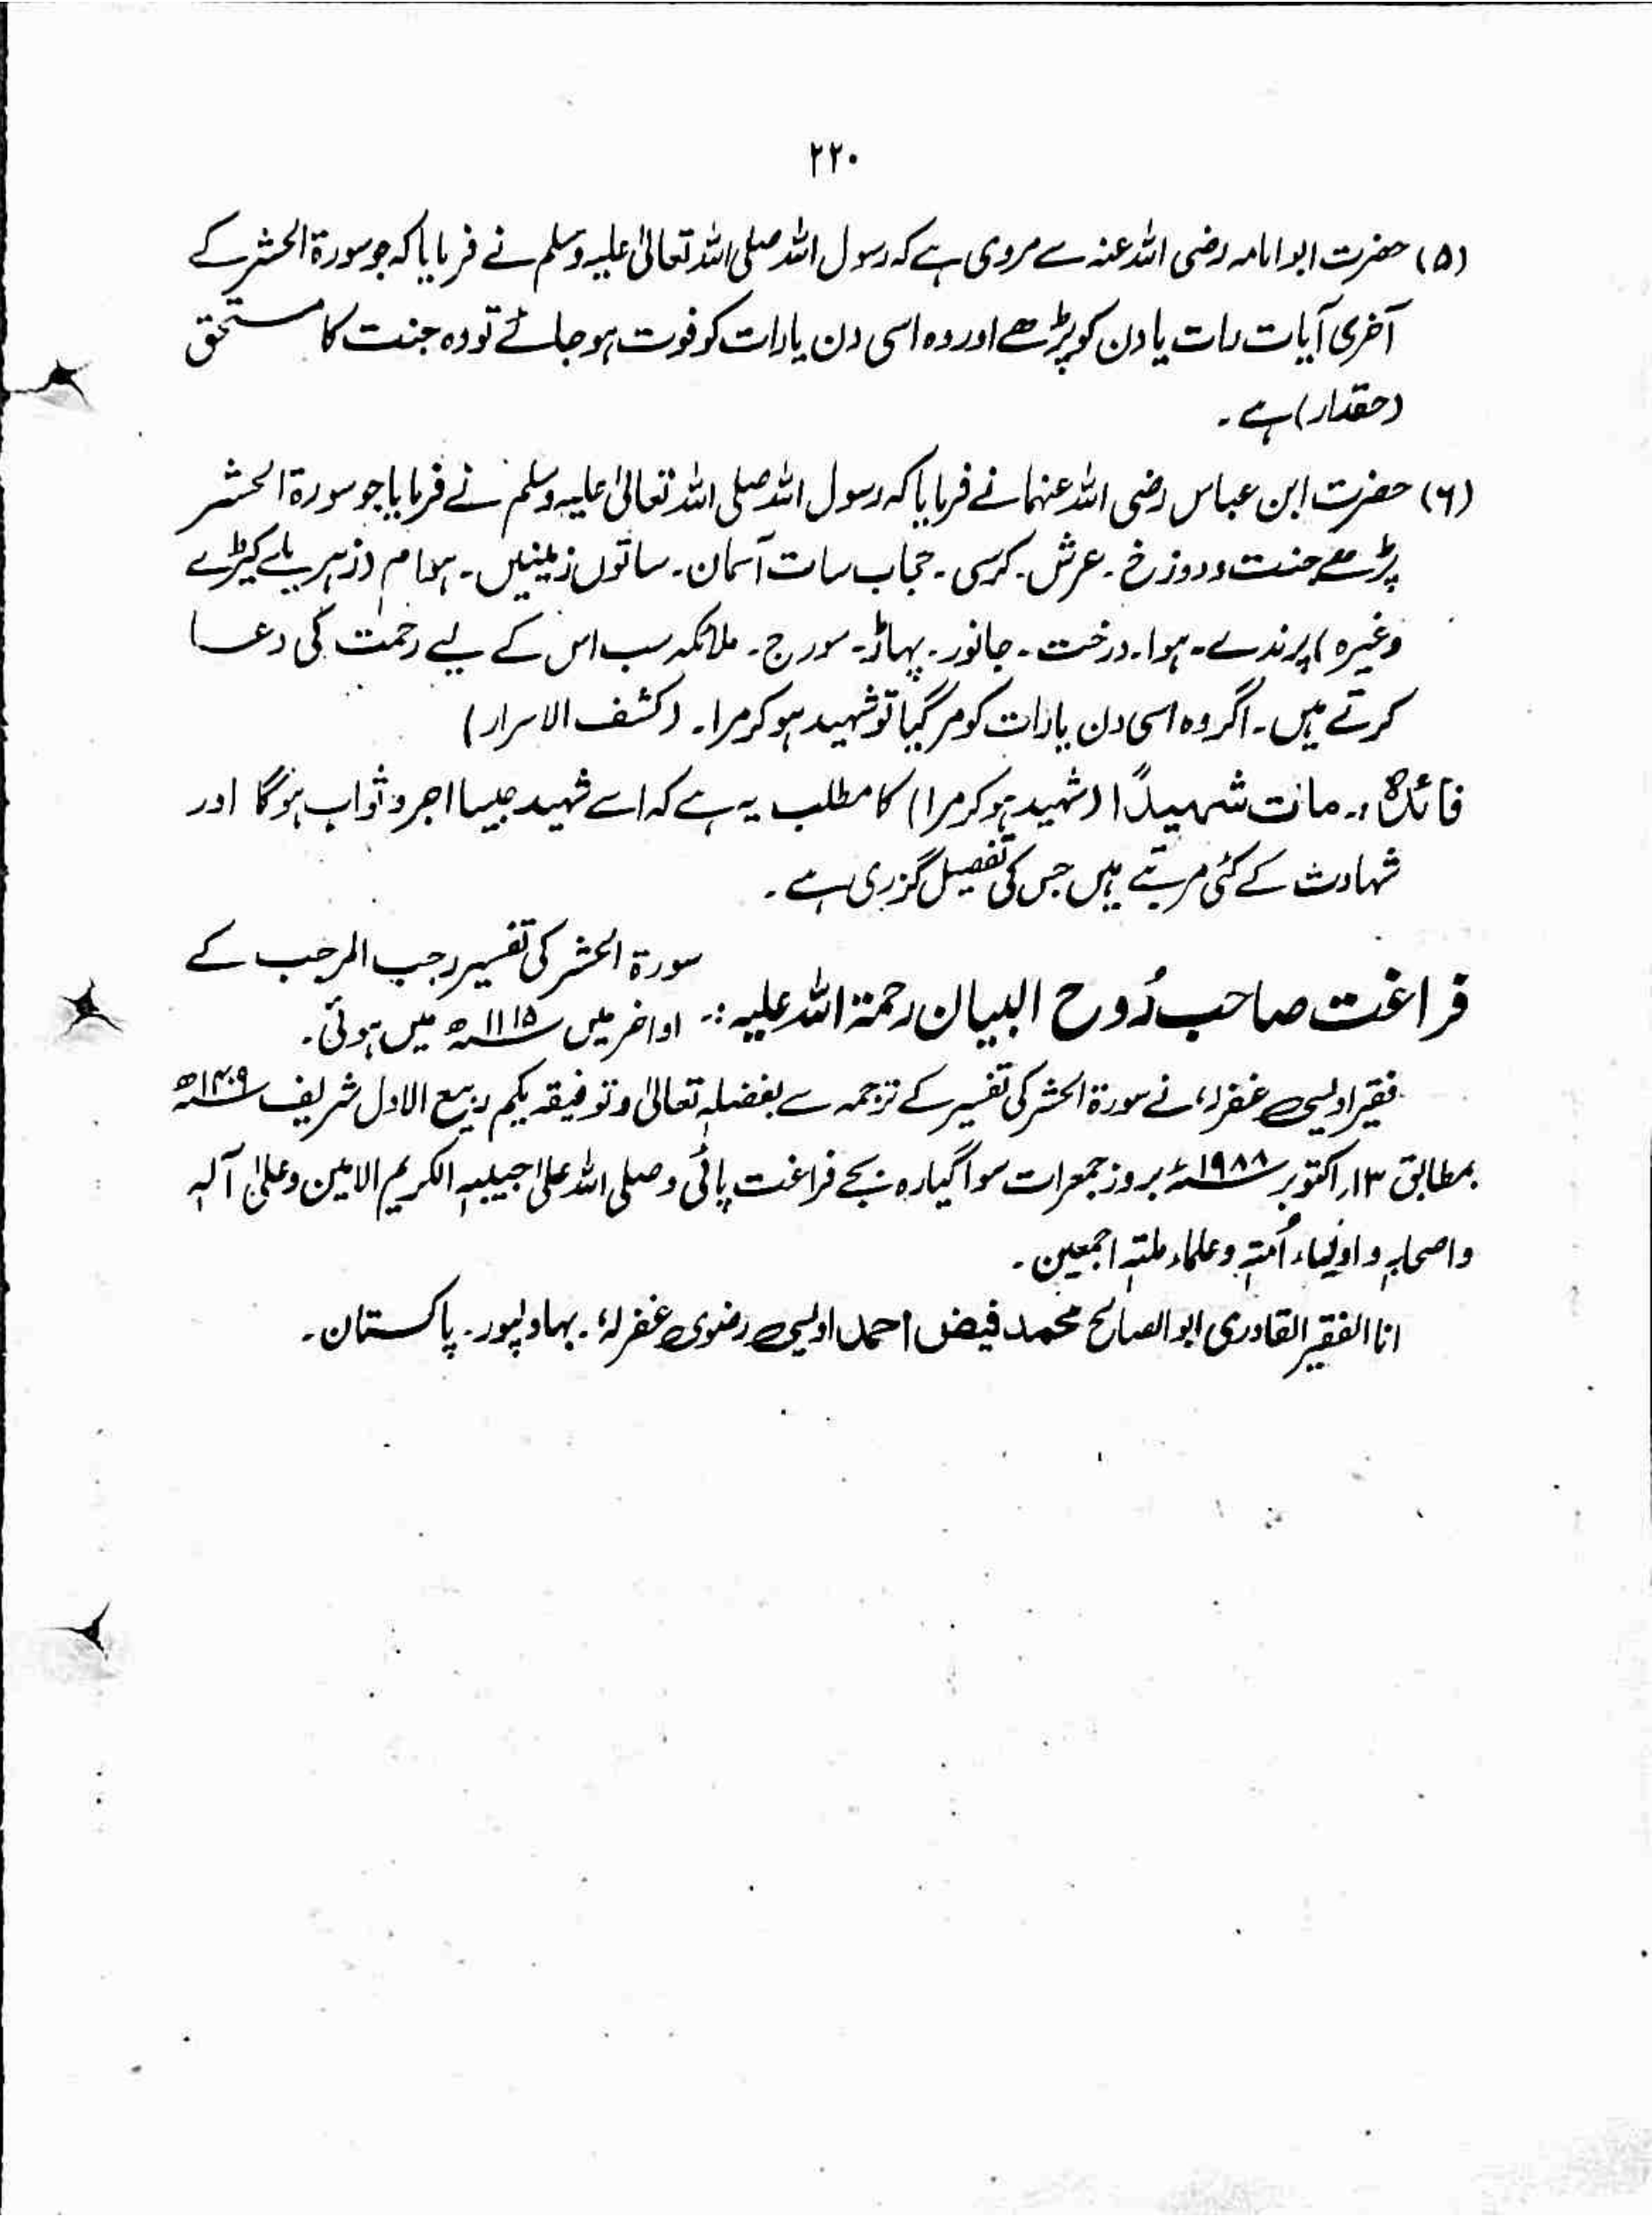 ۲۲۰
(۵) حضرت ابوامامہ رضی اللہ عنہ سے مروی ہے کہ رسول اللہ صلی اللہ تعالیٰ علیہ وسلم نے فرمایا کہ جو سورۃ الحشر کے
آخری آیات رات یا دن کو پڑھے اور وہ اسی دن یا رات کو فوت ہو جائے تو وہ جنت کا مستحق
(حقدار) ہے۔
(۶) حضرت ابن عباس رضی اللہ عنہما نے فرمایا کہ رسول اللہ صلی اللہ تعالیٰ علیہ وسلم نے فرمایا جو سورۃ الحشر
پڑھے جنت و دوزخ۔ عرش۔ کرسی۔ حجاب سات آسمان۔ ساتوں زمینیں۔ ہوام (زہریلے کیڑے
وغیرہ) پرندے۔ ہوا۔ درخت۔ جانور۔ پہاڑ۔ سورج۔ ملائکہ سب اس کے لیے رحمت کی دعا
کرتے ہیں۔ اگر وہ اسی دن یا رات کو مر گیا تو شہید ہو کر مرا۔ (کشف الاسرار)
فائدہ :۔ مات شہیداً (شہید ہو کر مرا) کا مطلب یہ ہے کہ اسے شہید جیسا اجر و ثواب ہوگا اور
شہادت کے کئی مرتبے ہیں جس کی تفصیل گزری ہے۔
فراغت صاحب رُوح البیان رحمۃ اللہ علیہ :۔ سورۃ الحشر کی تفسیر رجب المرجب کے
اواخر میں ۱۱۱۵ھ میں ہوئی۔
فقیر اویسی غفرلہٗ نے سورۃ الحشر کی تفسیر کے ترجمہ سے بفضلہٖ تعالیٰ و توفیقہ یکم ربیع الاول شریف ۱۴۰۹ھ
بمطابق ۱۳؍ اکتوبر ۱۹۸۸ء بروز جمعرات سوا گیارہ بجے فراغت پائی وصلی اللہ علیٰ حبیبہ الکریم الامین وعلیٰ آلہٖ
واصحابہٖ و اولیاء اُمتہٖ وعلماء ملتہٖ اجمعین۔
انا الفقیر القادری ابوالصالح محمد فیض احمد اویسی رضوی غفرلہٗ۔ بہاولپور۔ پاکستان۔